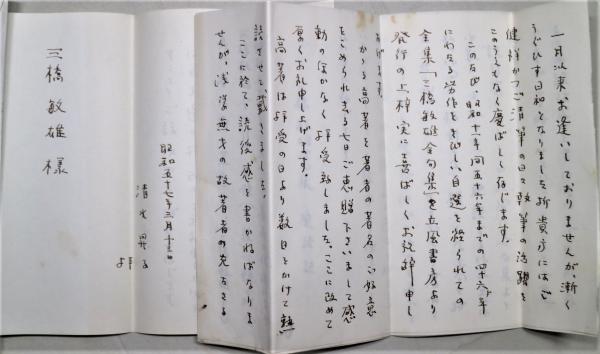 一月以来お逢いしておりませんが、漸く
うぐひす日和となりました折 貴方にはご
健祥かつご清筆の日々執筆の活躍を
このうえもなく慶ばしく存じます。
このたび、昭和十一年同五十六年までの四十六年
にわたる労作をきびしい自選を経られての
全集「三橋敏雄全句集」を立風書房より
発行の上梓実に喜ばしくお祝辞申し
あげます。
かかる高著を著者の著名のご好意
をこめられ七日ご恵贈下さいまして感
動のほかなく拝受致しました。ここに改めて
厚くお礼申し上げます。
高著は拝受の日より数日をかけて熟
読させて戴きました。
ここに於て、読後感を書かねばなりま
せんが、浅学無才の故著者の
昭和五十七年三月十三日
清水昇子
拝
三橋敏雄様